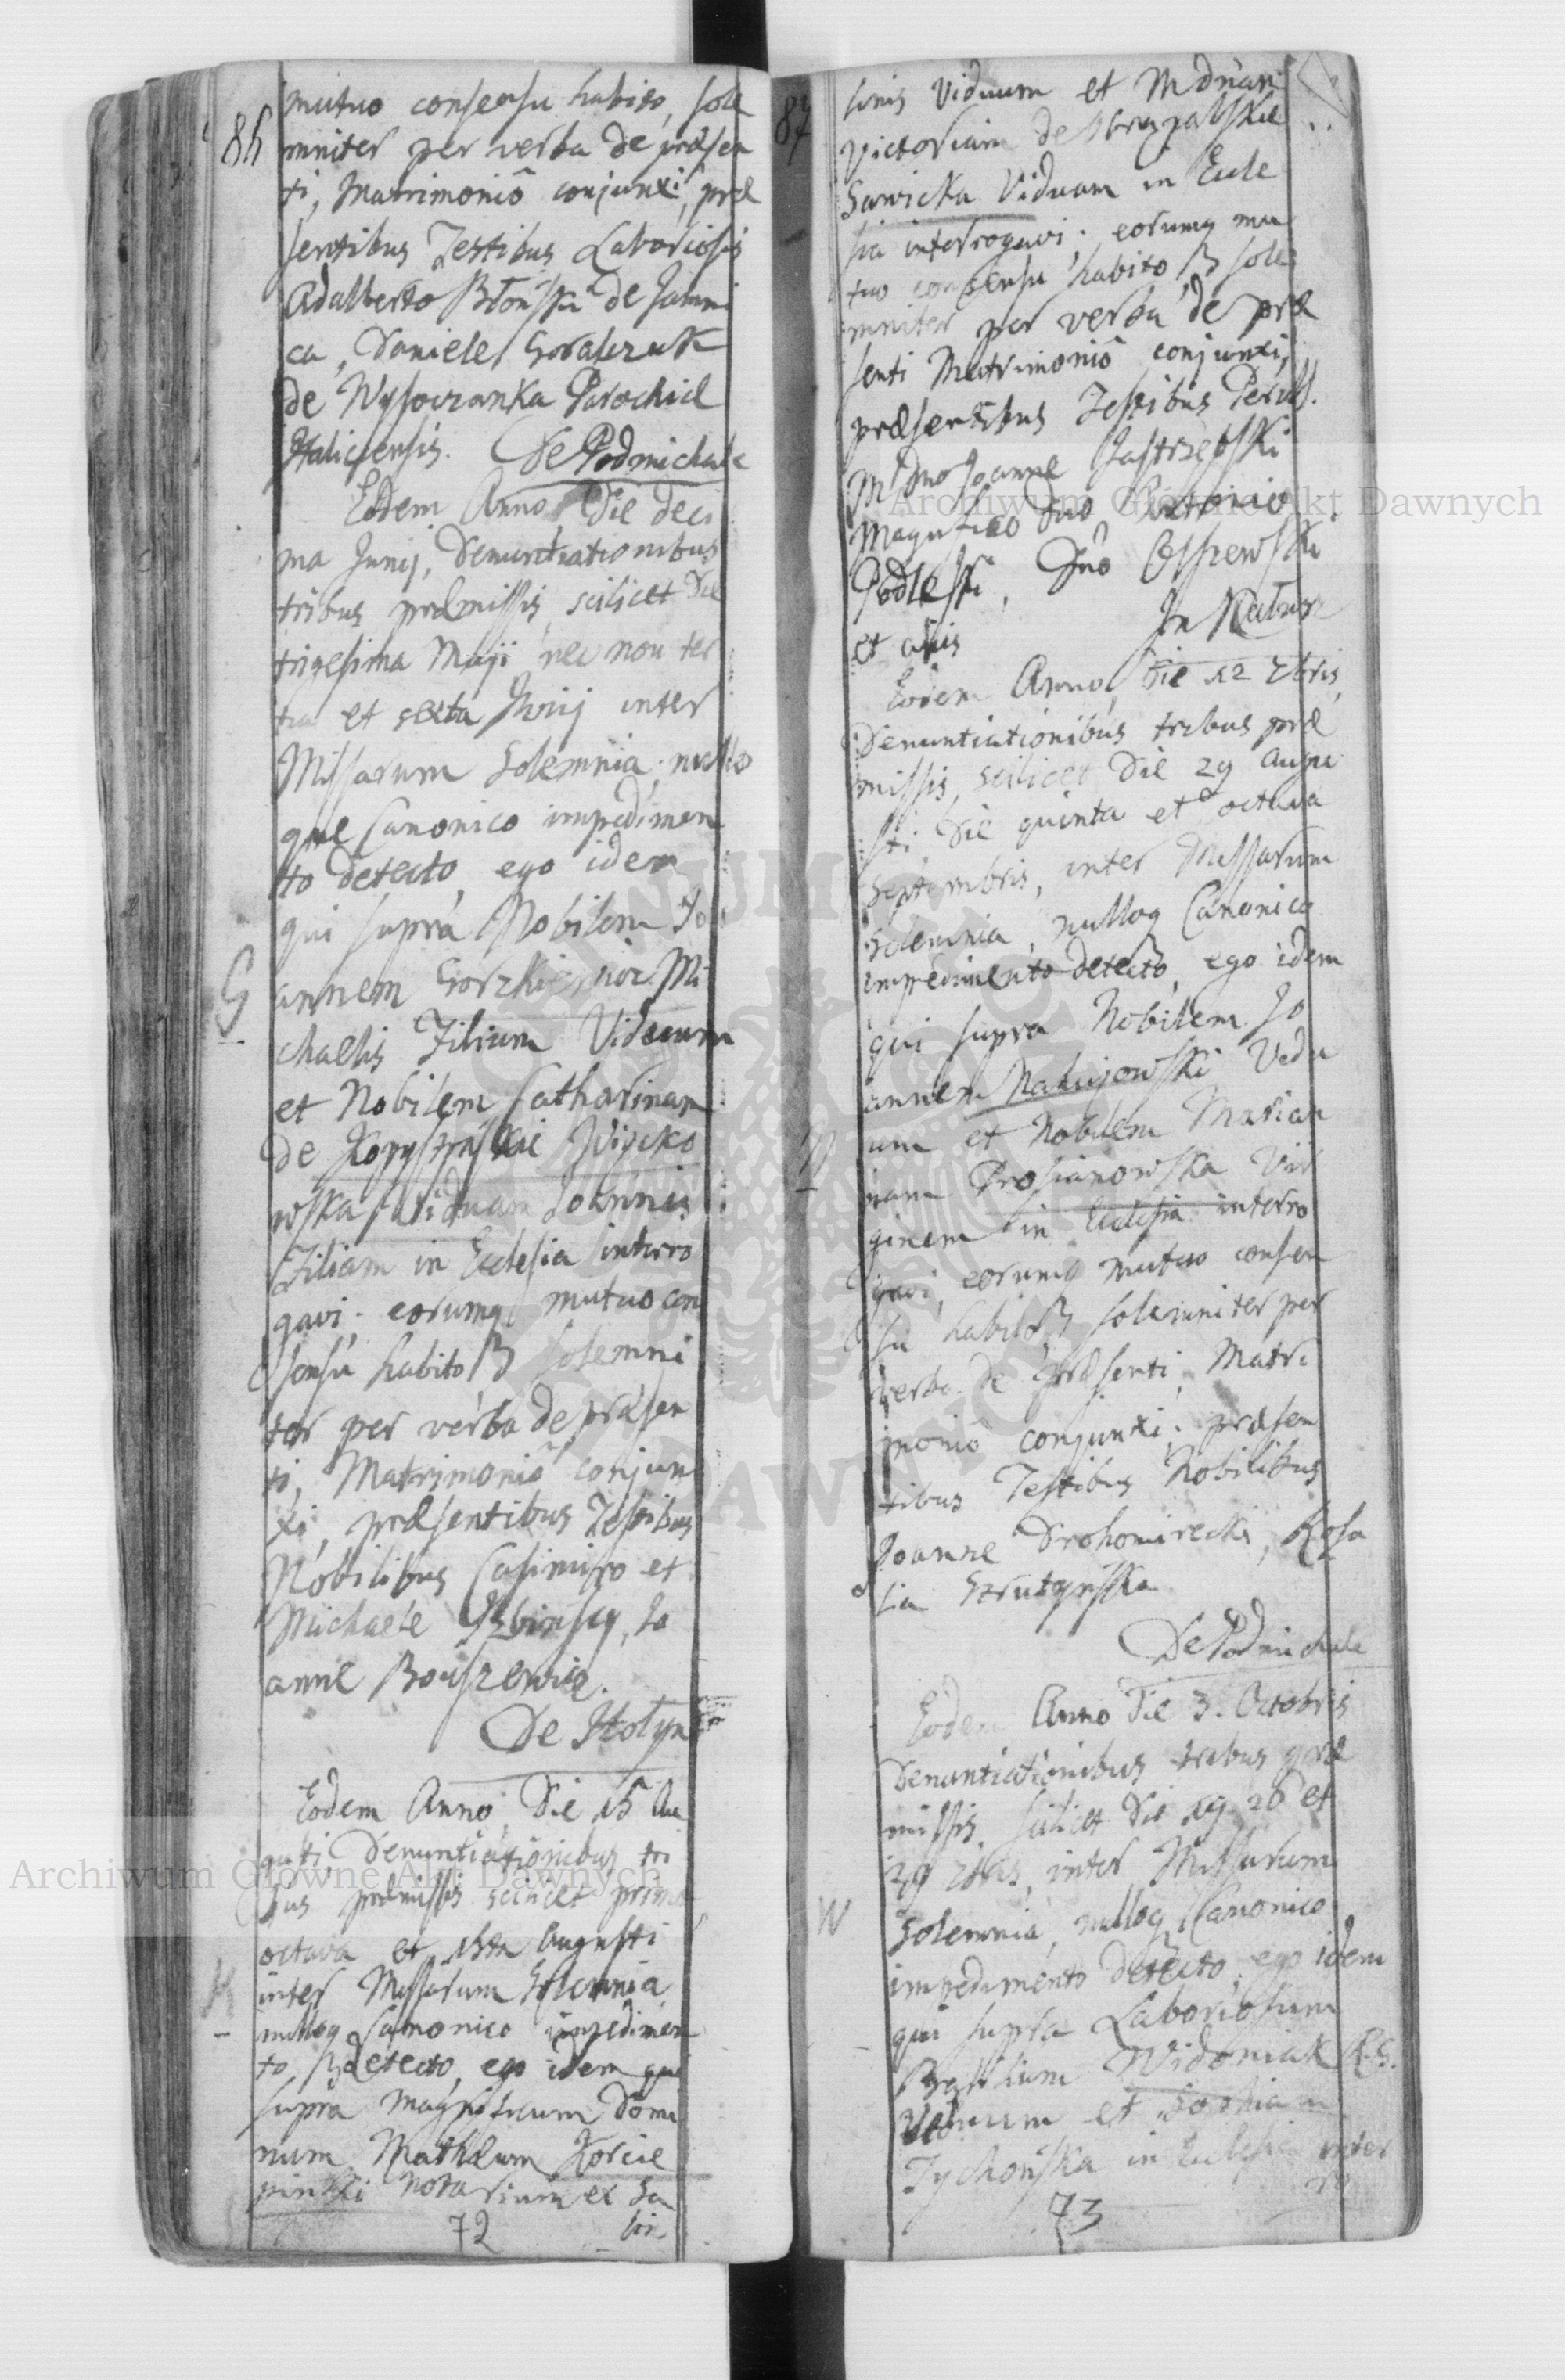 86
mutuo consensu habito, sole
mniter per verba de præsen
ti, Matrimoniô conjunxi, præ
sentibus Testibus Laboriosis
Adalberto de Jamni
ca, Daniele Goralczuk
de Wysoczanka Parochiæ
Haliciensis. De Podmichale
Eodem Anno, Die deci
ma Junij, Denuntiationibus
tribus præmissis, scilicet Die
trigesima Maji nec non ter
tia et sexta Junij inter
Missarum Solemnia, nullo
que Canonico impedimen
to detecto, ego idem
qui supra Nobilem Jo
G
annem Mi
chaelis Filium Viduum
et Nobilem Catharinam
de
wska Viduam Joannis
Filiam in Ecclesia interro
gavi. eorumq mutuo con
sensu habito solemni
ter per verba de præsen
ti, Matrimoniô conjun
xi, præsentibus Testibus
Nobilibus Casimiro et
Michaele Jo
anne
De Hołyn
Eodem Anno, Die 15 Au
gusti, Denuntiationibus tri
bus præmissis scilicet prima
octava et 15ta Augusti
K
inter Missarum Solemnia
nulloq Canonico impedimen
to detecto, ego idem qui
supra Magnificum Domi
num Mathæum Korcie
piński Notarium et Sa
72 lin
87
linis Viduum et M dnam
Victoriam de
Sawicka Viduam in Eccle
sia interrogavi; eorumq mu
tuo consensu habito, sole
mniter per verba de præ
senti Matrimoniô conjunxi,
præsentibus Testibus Perill.
M dno Joanne Jastrzębski
Magnifico Dno Antonio
Podleski, Dno
et aliis In Kałusz
Eodem Anno, Die 12 7bris,
Denuntiationibus tribus præ
missis, scilicet Die 29 Augu
sti Die quinta et octava
Septembris, inter Missarum
Solemnia, nulloq Canonico
impedimento detecto, ego idem
qui supra Nobilem Jo
annem Nahujowski Vidu
um et Nobilem Marian
nam Vir
ginem in Ecclesia interro
gavi, eorumq mutuo consen
su habito solemniter per
verba de præsenti, Matri
moniô conjunxi; præsen
tibus Testibus Nobilibus
Joanne Drohomirecki, Rosa
lia Strutyńska
De Podmichale
Eodem Anno Die 3. Octobris
Denuntiationibus tribus præ
missis scilicet Die 19 26 et
29 7bris, inter Missarum
W
Solemnia, nulloq Canonico
impedimento detecto, ego idem
qui supra Laboriosum
Basilium Widoniak R.G.
Viduum et Sophiam
Tychońska in Ecclesia inter
73 ro
Archiwum Główne Akt Dawnych
Archiwum Główne Akt Dawnych